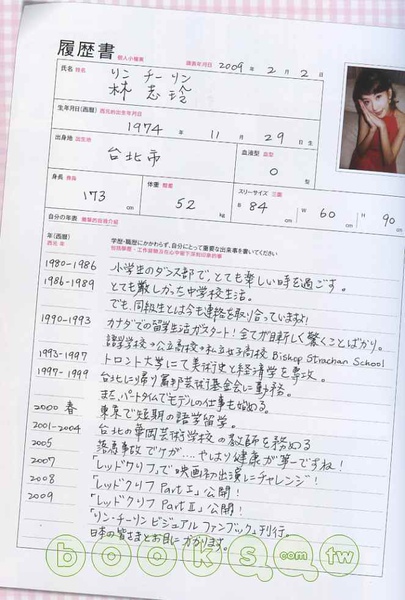 履歴書 個人小檔案
填表年月日 2009 年 2 月 2 日
氏名 姓名
リン チーリン
林 志玲
生年月日(西暦) 西元的出生年月日
1974 年 11 月 29 日 生
出身地 出生地
台北市
血液型 血型
O 型
身長 身高
173 cm
体重 體重
52 kg
スリーサイズ 三圍
B 84 cm W 60 cm H 90 cm
自分の年表
年(西暦) 西元 年
学歴・職歴にかかわらず、自分にとって重要な出来事を書いてください
1980-1986 小学生のダンス部で、とても楽しい時を過ごす。
1986-1989 とても厳しかった中学校生活。
でも、同級生とは今も連絡を取り合っていますよ!
1990-1993 カナダでの留学生活がスタート!全てが目新しく驚くことばかり。
語学学校→公立高校→私立女子高校 Bishop Strachan School
1993-1997 トロント大学にて美術史と経済学を専攻。
1997-1999 台北に帰り、基金会に勤務。
また、パートタイムでモデルの仕事も始める。
2000 春 東京で短期の語学留学。
2001-2004 台北の華岡芸術学校の教師を務める
2005 落馬事故でケガ....やっぱり健康が第一ですね!
2007 「レッドクリフ」で映画初出演にチャレンジ!
2008 「レッドクリフ Part I」公開!
2009 「レッドクリフ Part II」公開!
「リン・チーリン ビジュアル ファンブック」刊行。
日本の皆さまとお目にかかります。
books.com.tw